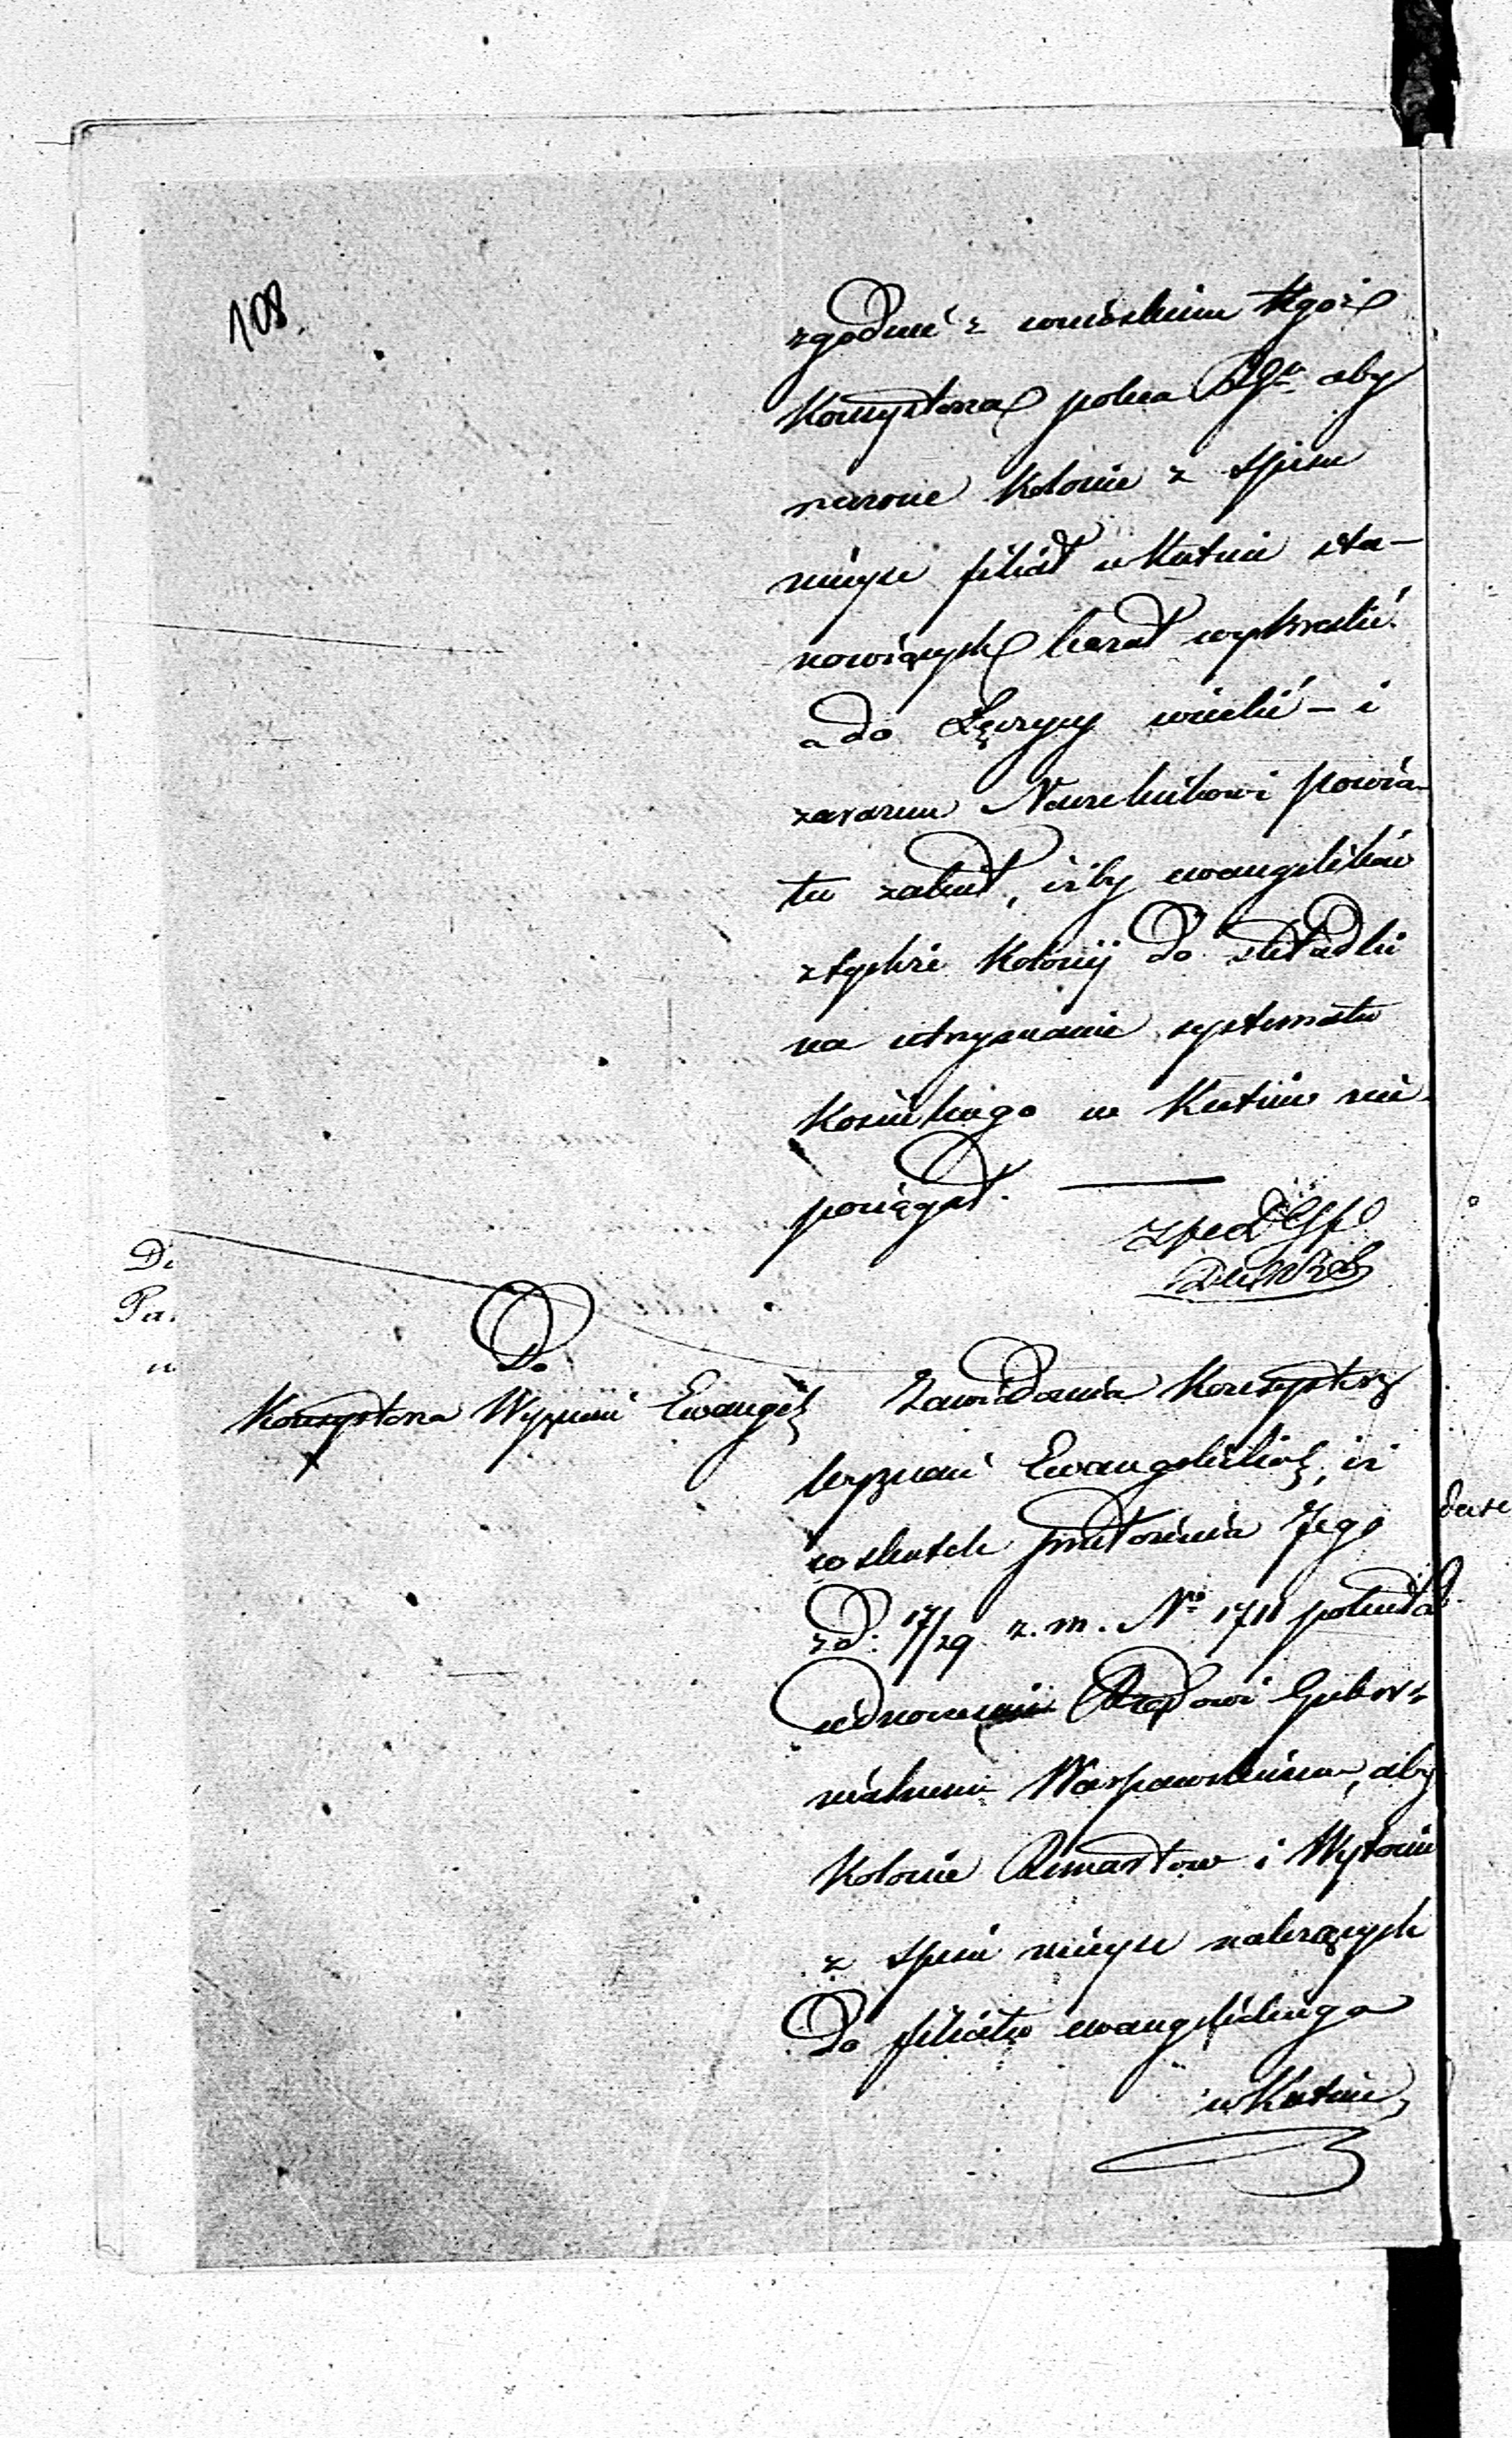 108.
zgodnie z wnioskiem tegoż
Konsystorza poleca RGu aby
rzeczone Kolonie z spisu
miejsc filiał w Kutnie sta-
nowiących kazał wykreślić
a do Łęczycy wcielić – i
zarazem Naczelnikowi powia-
tu zalecił, iżby ewangelików
z tychże Kolonij do składki
na utrzymanie systematu
kościelnego w Kutnie nie
pociągał.
Do
Konsystorza Wyznań Ewangel
Zawiadamia Konsystorz
Wyznań Ewangelickich, iż
w skutek przedstawienia Jego
z d. 17/29 z. m. No 1711 poleciła
jednocześnie Rządowi Guber-
nialnemu Warszawskiemu, aby
Kolonie Romartow i Wytowin
z spisu miejsc należących
Do filiału ewangelickiego
w Kutnie